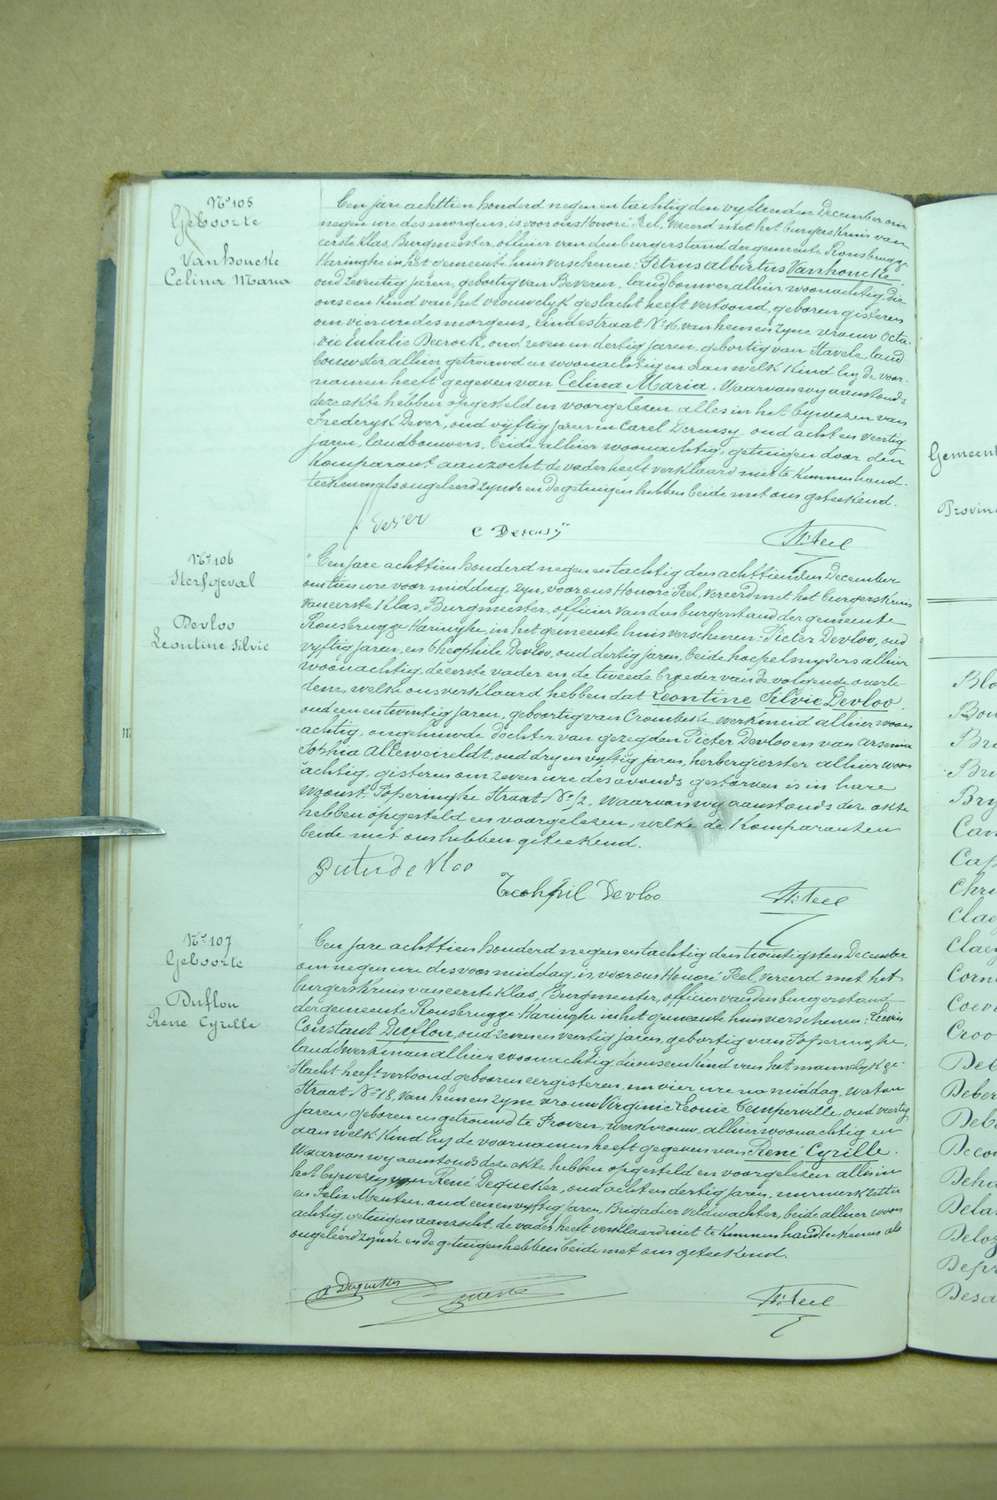 No 105
Geboorte
Vanhoucke
Celina Maria
Een jare achttien honderd negen en tachtig den vyftienden December om
negen ure des morgens, is voor ons Honoré Reel, vereerd met het burgerskruis van
eerste klas, Burgmeester, officier van den burgerstand der gemeente Rousbrugge
Haringhe in het gemeente huis verschenen: Petrus Albertus Vanhoucke,
oud zeventig jaren, geboortig van Beveren, landbouwer, alhier woonachtig, die
ons een kind van het vrouwelyk geslacht heeft vertoond, geboren gisteren
om vier ure des morgens, Lindestraat No 16, van hem en zyne vrouw Octa-
vie Eulalie Decrock, oud zeven en dertig jaren, geboortig van Stavele, land-
bouwster alhier, getrouwd en woonachtig en aan welk kind hy de voor-
namen heeft gegeven van Celina Maria. Waarvan wy aanstonds
deze akte hebben opgesteld en voorgelezen alles in het bywezen van
Frederyk Dever, oud vyftig jaren en Carel Derensy, oud acht en veertig
jaren, landbouwers, beide alhier woonachtig, getuigen door den
komparant aanzocht, de vader heeft verklaard niet te kunnen hand-
teekenen als ongeleerd zynde en de getuigen hebben beide met ons geteekend.
Dever C Derensy H. Reel
No 106
Sterfgeval
Devloo
Leontine Silvie
Een jare achttien honderd negen en tachtig den achttienden December
om tien ure voormiddag, zyn, voor ons Honoré Reel, vereerd met het burgerskruis
van eerste klas, Burgmeester, officier van den burgerstand der gemeente
Rousbrugge Haringhe, in het gemeente huis verschenen: Pieter Devloo, oud
vyftig jaren, en Theophile Devloo, oud dertig jaren, beide hoepelsnyders alhier
woonachtig, de eerste vader en de tweede broeder van de volgende overle-
dene, welke ons verklaard hebben dat Leontine Silvie Devloo,
oud een en twintig jaren, geboortig van Crombeke, werkmeid alhier woon-
achtig, ongehuwde dochter van gezegden Pieter Devloo en van Arsenia
Sophia Alleweireldt, oud dry en vyftig jaren, herbergierster alhier woon-
achtig, gisteren om zeven ure des avonds gestorven is in hare
woonst Poperinghe Straat No 12. Waarvan wy aanstonds deze akte
hebben opgesteld en voorgelezen, welke de komparanten
beide met ons hebben geteekend.
Pieter de Vloo
Teohfiel Devloo H. Reel
No 107
Geboorte
Duflou
René Cyrille
Een jare achttien honderd negen en tachtig den twintigsten December
om negen ure des voormiddag, is voor ons Honoré Reel, vereerd met het
burgerskruis van eerste klas, Burgmeester, officier van den burgerstand
der gemeente Rousbrugge Haringhe in het gemeente huis verschenen: Lievin
Constant Duflou, oud zeven en veertig jaren, geboortig van Poperinghe,
landswerkman alhier woonachtig, die ons een kind van het mannelyk ge-
slacht heeft vertoond, geboren eergisteren, om vier ure na middag, Watou
Straat No 18, van hem en zyne vrouw Virginie Leonie Tempervelle, oud veertig
jaren, geboren en getrouwd te Proven, werkvrouw, alhier woonachtig en
aan welk kind hy de voornamen heeft gegeven van René Cyrille.
Waarvan wy aanstonds deze akte hebben opgesteld en voorgelezen alles in
het bywezen van René Dequeker, oud acht en dertig jaren, uurwerkzetter
en Felix Meuten, oud een en vyftig jaren, Brigadier Veldwachter, beide alhier woon-
achtig, getuigen aanzocht, de vader heeft verklaard niet te kunnen handteekenen als
ongeleerd zynde en de getuigen hebben beide met ons geteekend.
R Dequeker H. Reel
Gemeent
Provin
Blo
Bou
Bry
Cap
Chr
Claey
Corn
Croo
Deber
Depr